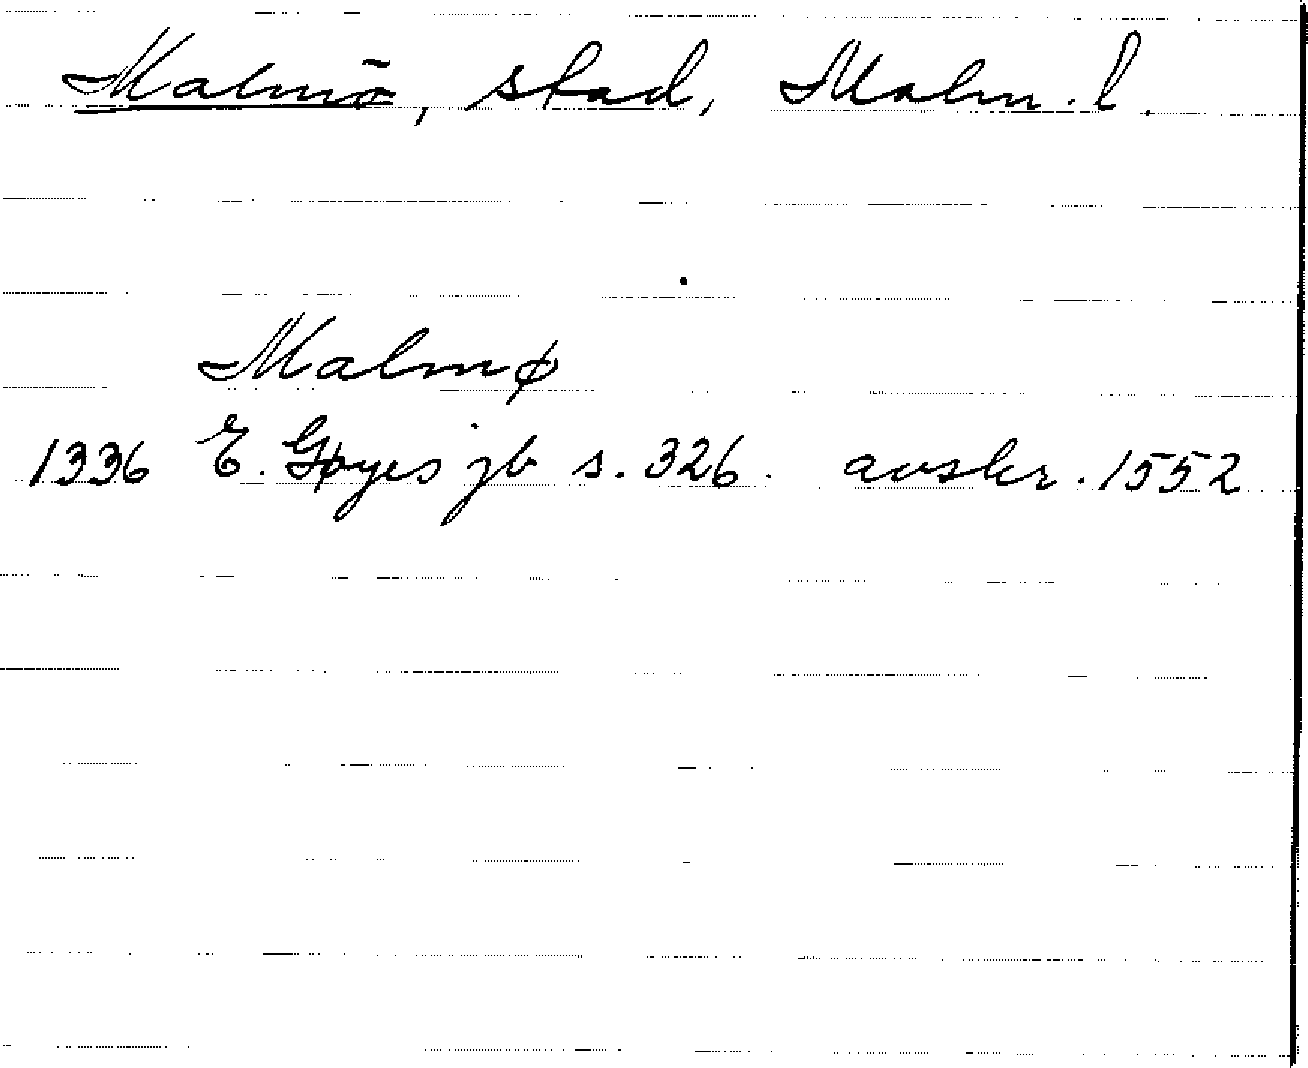 Malmö, stad, Malm. l.
Malmø
1336 E. Gøyes jb s. 326. avskr. 1552